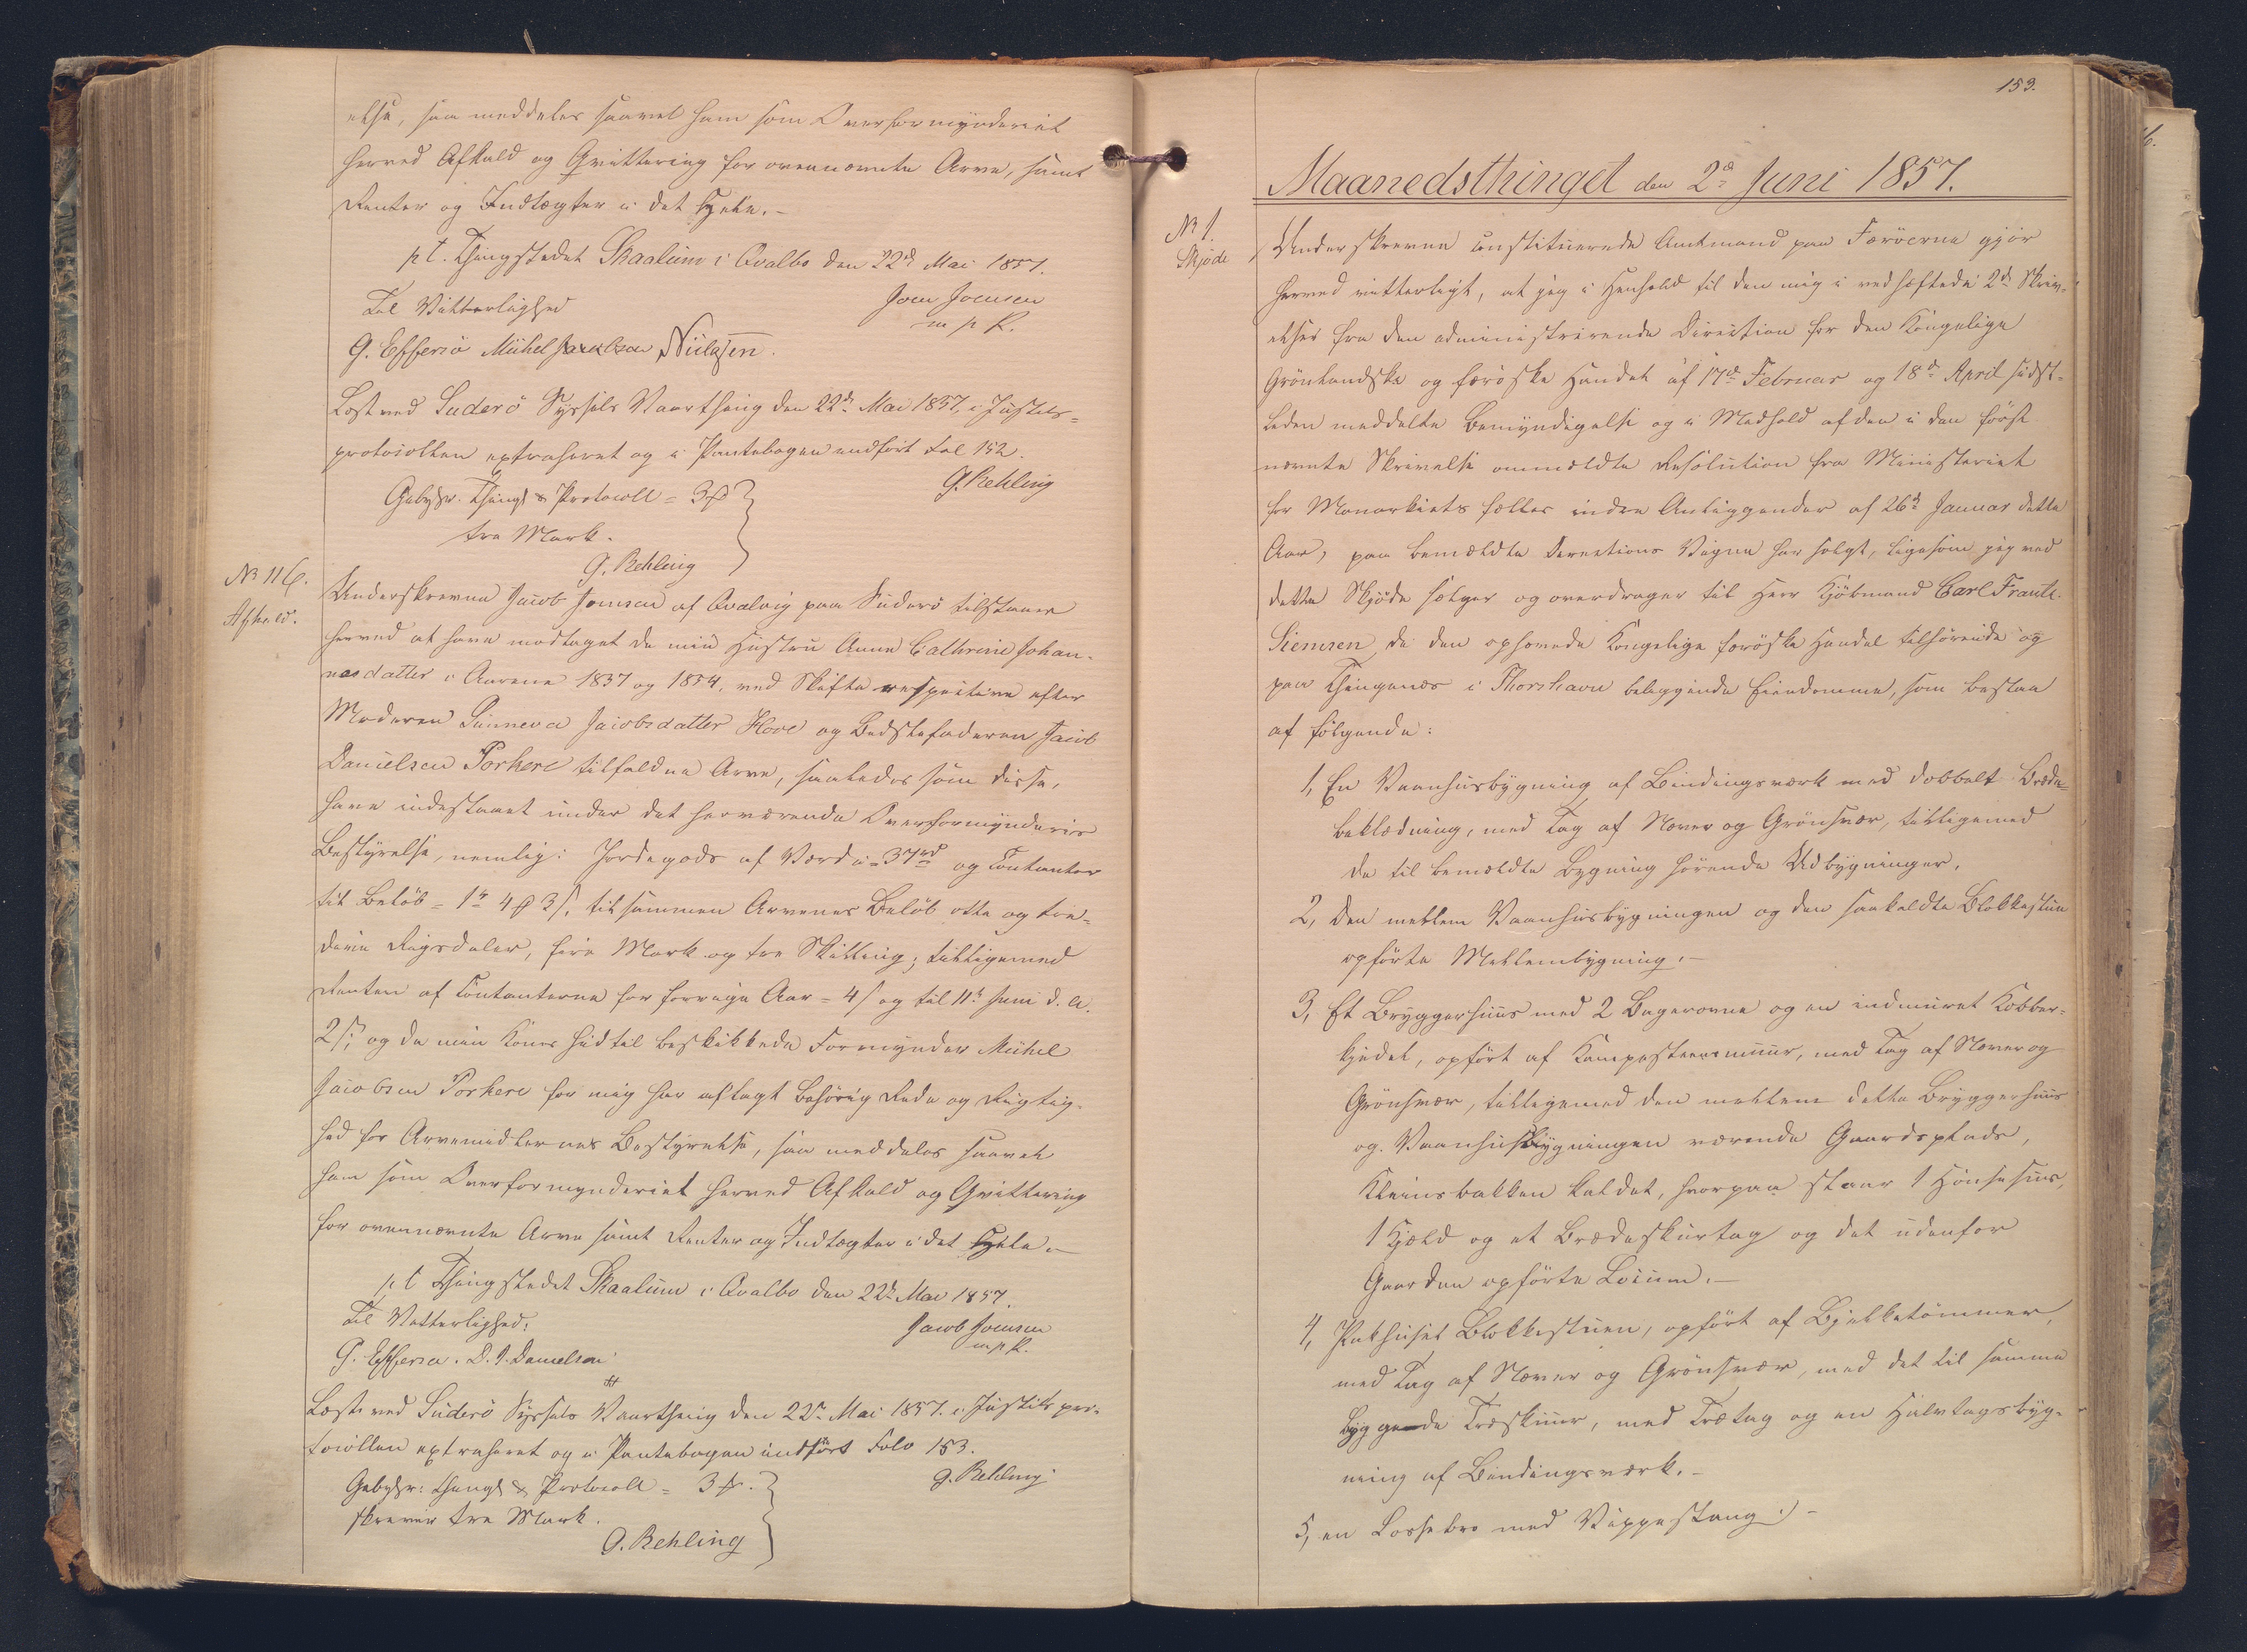 else, saa meddeles saavel ham som Overformynderiet
herved Afkald og Qvittering for ovennævnte Arve, samt
Renter og Indtægter i det Hele. -
p t. Thingstedet Skaalum i Qvalbo den 22d Mai 1857.
Til Vitterlighed
Joen Joensen
m p P.
G. Effersø Michel Jacobsen Nielsen.
Læst ved Suderö Syssels Vaarthing den 22d Mai 1857, i Justits-
protocollen extraheret og i Pantebogen indført Fol 152.
G. Rehling
Gebyhr. Thingl & Protocoll = 3
tre Mark.
G. Rehling
No 116.
Afkald.
Underskrevne Jacob Joensen af Qvalvig paa Suderö tilstaaer
herved at have modtaget de min Hustru Anne Cathrine Johan-
nesdatter i Aarene 1837 og 1854, ved Skifte respective efter
Moderen Sunneva Jacobsdatter Hove og Bedstefaderen Jacob
Danielsen Porkere tilfaldne Arve, saaledes som disse,
have indestaaet under det herværende Overformynderies
Bestyrelse, nemlig: Jordegods af Værdi = 37rd og Contanter
til Beløb = 1rd 4 3 s, tilsammen Arvenes Beløb otte og tre-
deve Rigsdaler, fire Mark og tre Skilling; tilligemed
Renten af Contanterne for forrige Aar = 4 s og til 11te Juni d. A.
2 s; og da min Kones hidtil beskikkede Formynder Michel
Jacobsen Porkere for mig har aflagt behørig Rede og Rigtig-
hed for Arvemidlernes Bestyrelse, saa meddeles saavel
ham som Overformynderiet herved Afkald og Qvittering
for ovennævnte Arve samt Renter og Indtægter i det Hele. -
p t Thingstedet Skaalum i Qvalbo den 22d Mai 1857.
Til Vitterlighed:
Jacob Joensen
m. p P.
G. Effersø. D. J. Danielsen
Læst ved Suderö Syssels Vaarthing den 22d Mai 1857. i Justitspro-
tocollen extraheret og i Pantebogen indført Folio 153.
G. Rehling
Gebyhr: Thingl & Protocoll = 3
skriver tre Mark.
G. Rehling
153.
Maanedsthinget den 2d Juni 1857.
No 1.
Skjøde
Underskrevne constituerede Amtmand paa Færøerne gjør
herved vitterligt, at jeg i Henhold til den mig i vedhæftede 2de Skriv-
elser fra den administrerende Direction for den Kongelige
Grønlandske og færøske Handel af 17d Februar og 18d April sidst-
leden meddelte Bemyndigelse og i Medhold af den i den først
nævnte Skrivelse ommeldte Resolution fra Ministeriet
for Monarkiets fælles indre Anliggender af 26d Januar dette
Aar, paa bemeldte Directions Vegne har solgt, ligesom jeg ved
dette Skjøde sælger og overdrager til Herr Kjøbmand Carl Frantz
Siemsen de den ophævede Kongelige færøske Handel tilhørende og
paa Thinganæs i Thorshavn beliggende Eiendomme, som bestaa
af følgende:
1, En Vaanhusbygning af Bindingsværk med dobbelt Bræde-
beklædning, med Tag af Næver og Grønsvær, tilligemed
de til bemeldte Bygning hørende Udbygninger,
2, den mellem Vaanhusbygningen og den saakaldte Blokkestue
opførte Mellembygning. -
3, Et Bryggerhuus med 2 Bagerovne og en indmuret Kobber-
kjedel, opført af Kampesteensmuur, med Tag af Næver og
Grønsvær, tilligemed den mellem dette Bryggerhuus
og Vaanhusbygningen værende Gaardsplads,
Kleinsbakken kaldet, hvorpaa staaer 1 Hønsehuus,
1 Kjeld og et Brædeskurtag og det udenfor
Gaarden opførte Locum. -
4, Pakhuset Blokkestuen, opført af Bjelketømmer,
med Tag af Næver og Grønsvær, med det til samme
byggede Træskuur, med Trætag og en Halvtagsbyg-
ning af Bindingsværk. -
5, en Lossebro med Vippestang. -